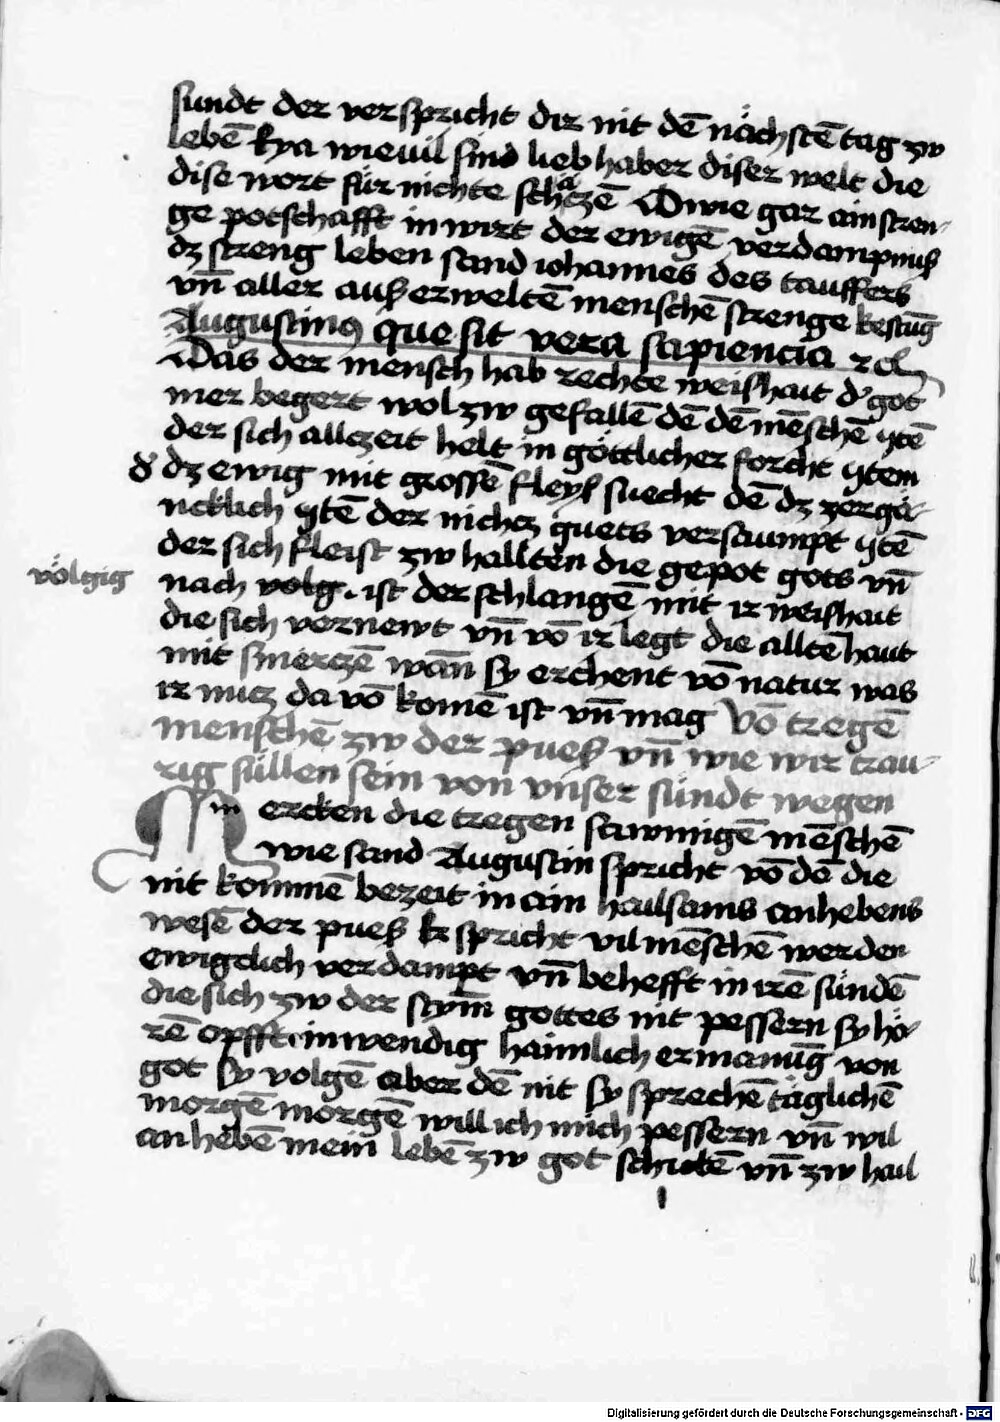 sundt der verspricht dir nit dē nächstē tag zw
lebē Eya wieuil sind liebhaber diser welt die
dise wort für nichte schäczē O wie gar ain stren-
ge potschafft in wirt der ewigē verdampnuß
dz streng leben sand iohannes des tauffers
vn̄ aller außerweltē menschē strenge kestūg
Augustinus que sit vera sapiencia
Das der mensch hab rechte weishait d' got
mer begert wol zw gefallē dē dē mēschē ytē
der sich allczeit helt in göttlicher forcht ytem
d' dz ewig mit grossē fleyß suecht dē dz zergä-
ncklich ytē der nichcz guets versaumpt ytē
der sich fleist zw hallten die gepot gots vn̄
völgig
nach volg. ist der schlangē mit ir weishait
die sich vernewt vn̄ vō ir legt die alltē haut
mit smerczē wān sy erchent vō natur was
ir nucz da vō komē ist vn̄ mag Vō tregē
menschē zw der pueß vn̄ wie wir trau-
rig süllen sein von vnser sündt wegen
Mercken die tregen sawmigē mēschē
wie sand Augustin spricht vō dē die
nit kommē bezeit in ain hailsams anhebens
wesē der pueß Er spricht vil mēschē werden
ewigclich verdampt vn̄ behefft in irē sündē
die sich zw der stym̄ gottes nit pessern sy hö-
rē opfft inwendig haimlich ermanūg von
got sy volgē aber dē nit sy sprechē täglichē
morgē morgē will ich mich pessern vn̄ wil
anhebē mein̄ lebē zw got schickē vn̄ zw hail
Digitalisierung gefördert durch die Deutsche Forschungsgemeinschaft - DFG